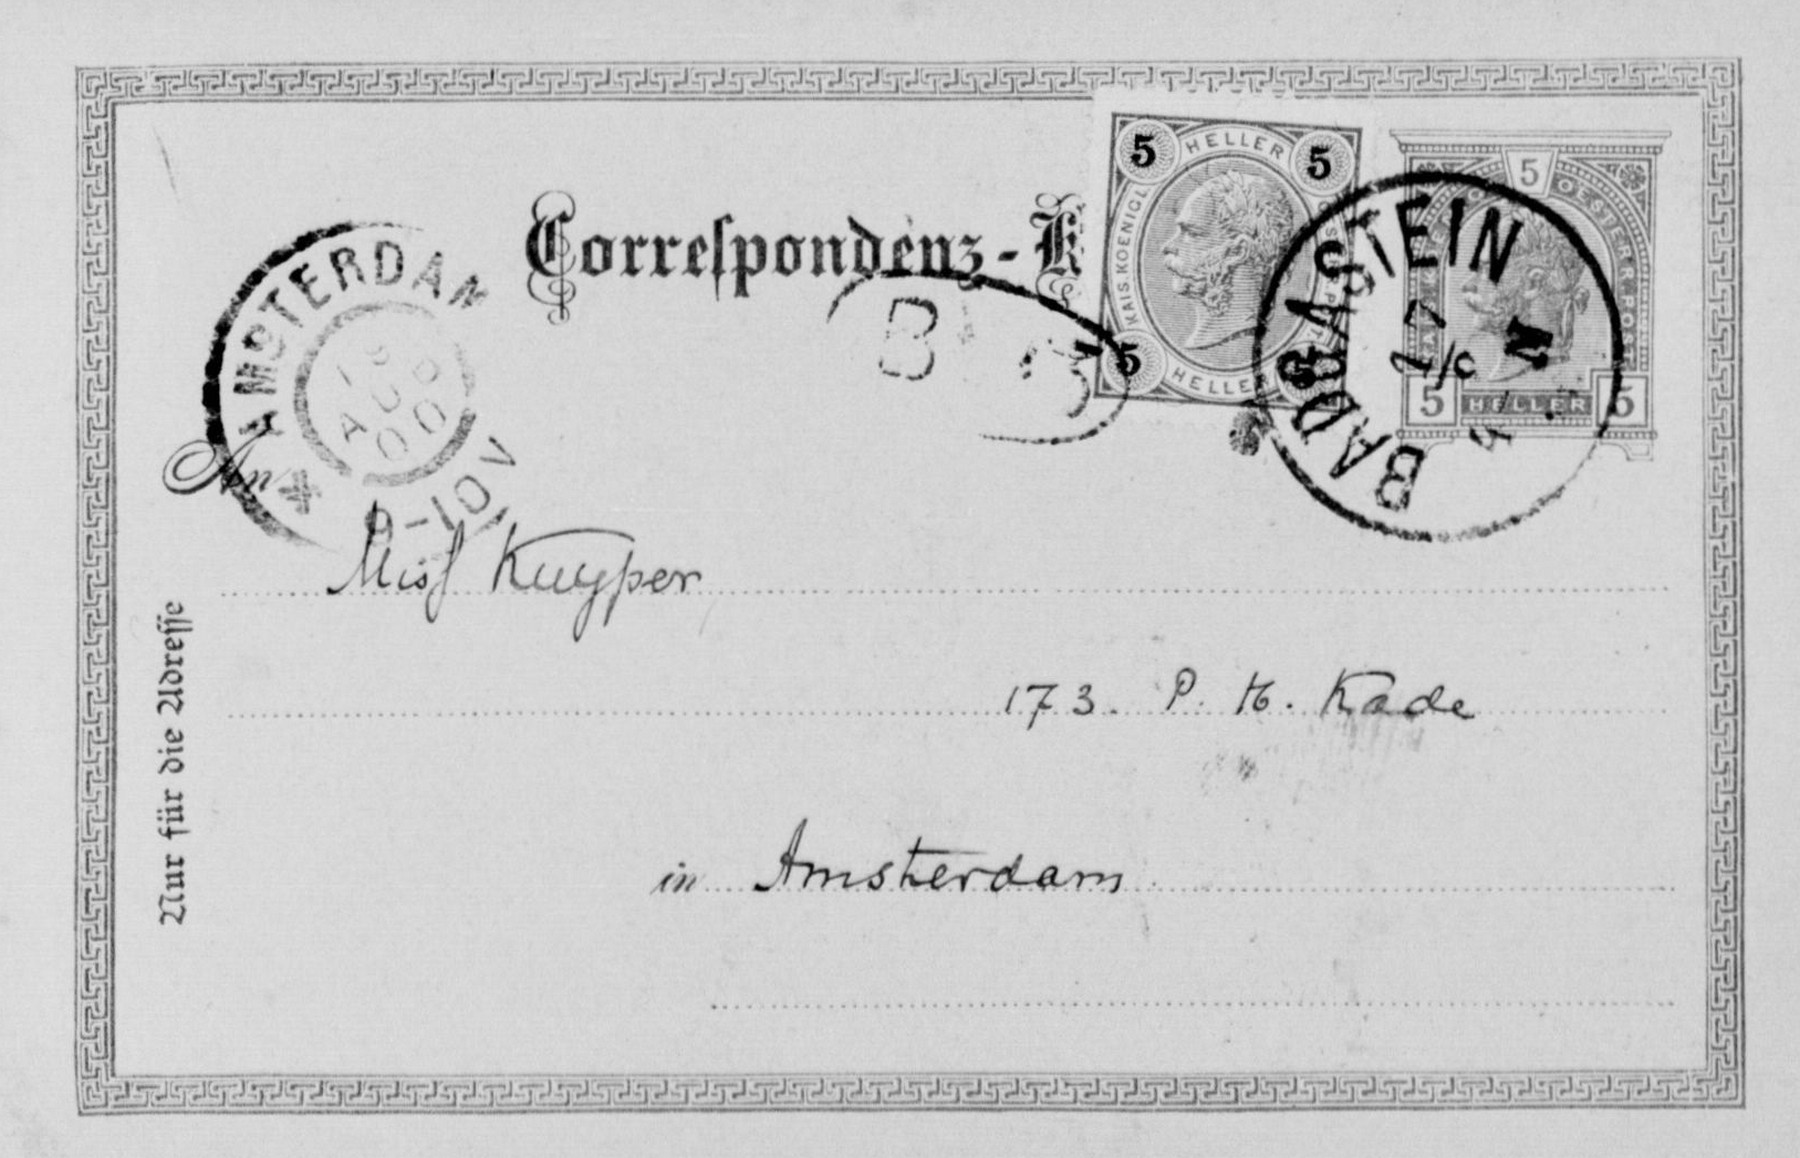 Correſpondenz-K
5 HELLER 5
KAIS. KOENIGL.
5 HELLER
5
OESTERR. POST
5 HELLER 5
BADGASTEIN
17
N
AMSTERDAM
AUG
00
8-10V
3
An
Miss Kuyper
173. P. H. Kade
in Amsterdam
Nur für die Adreſſe